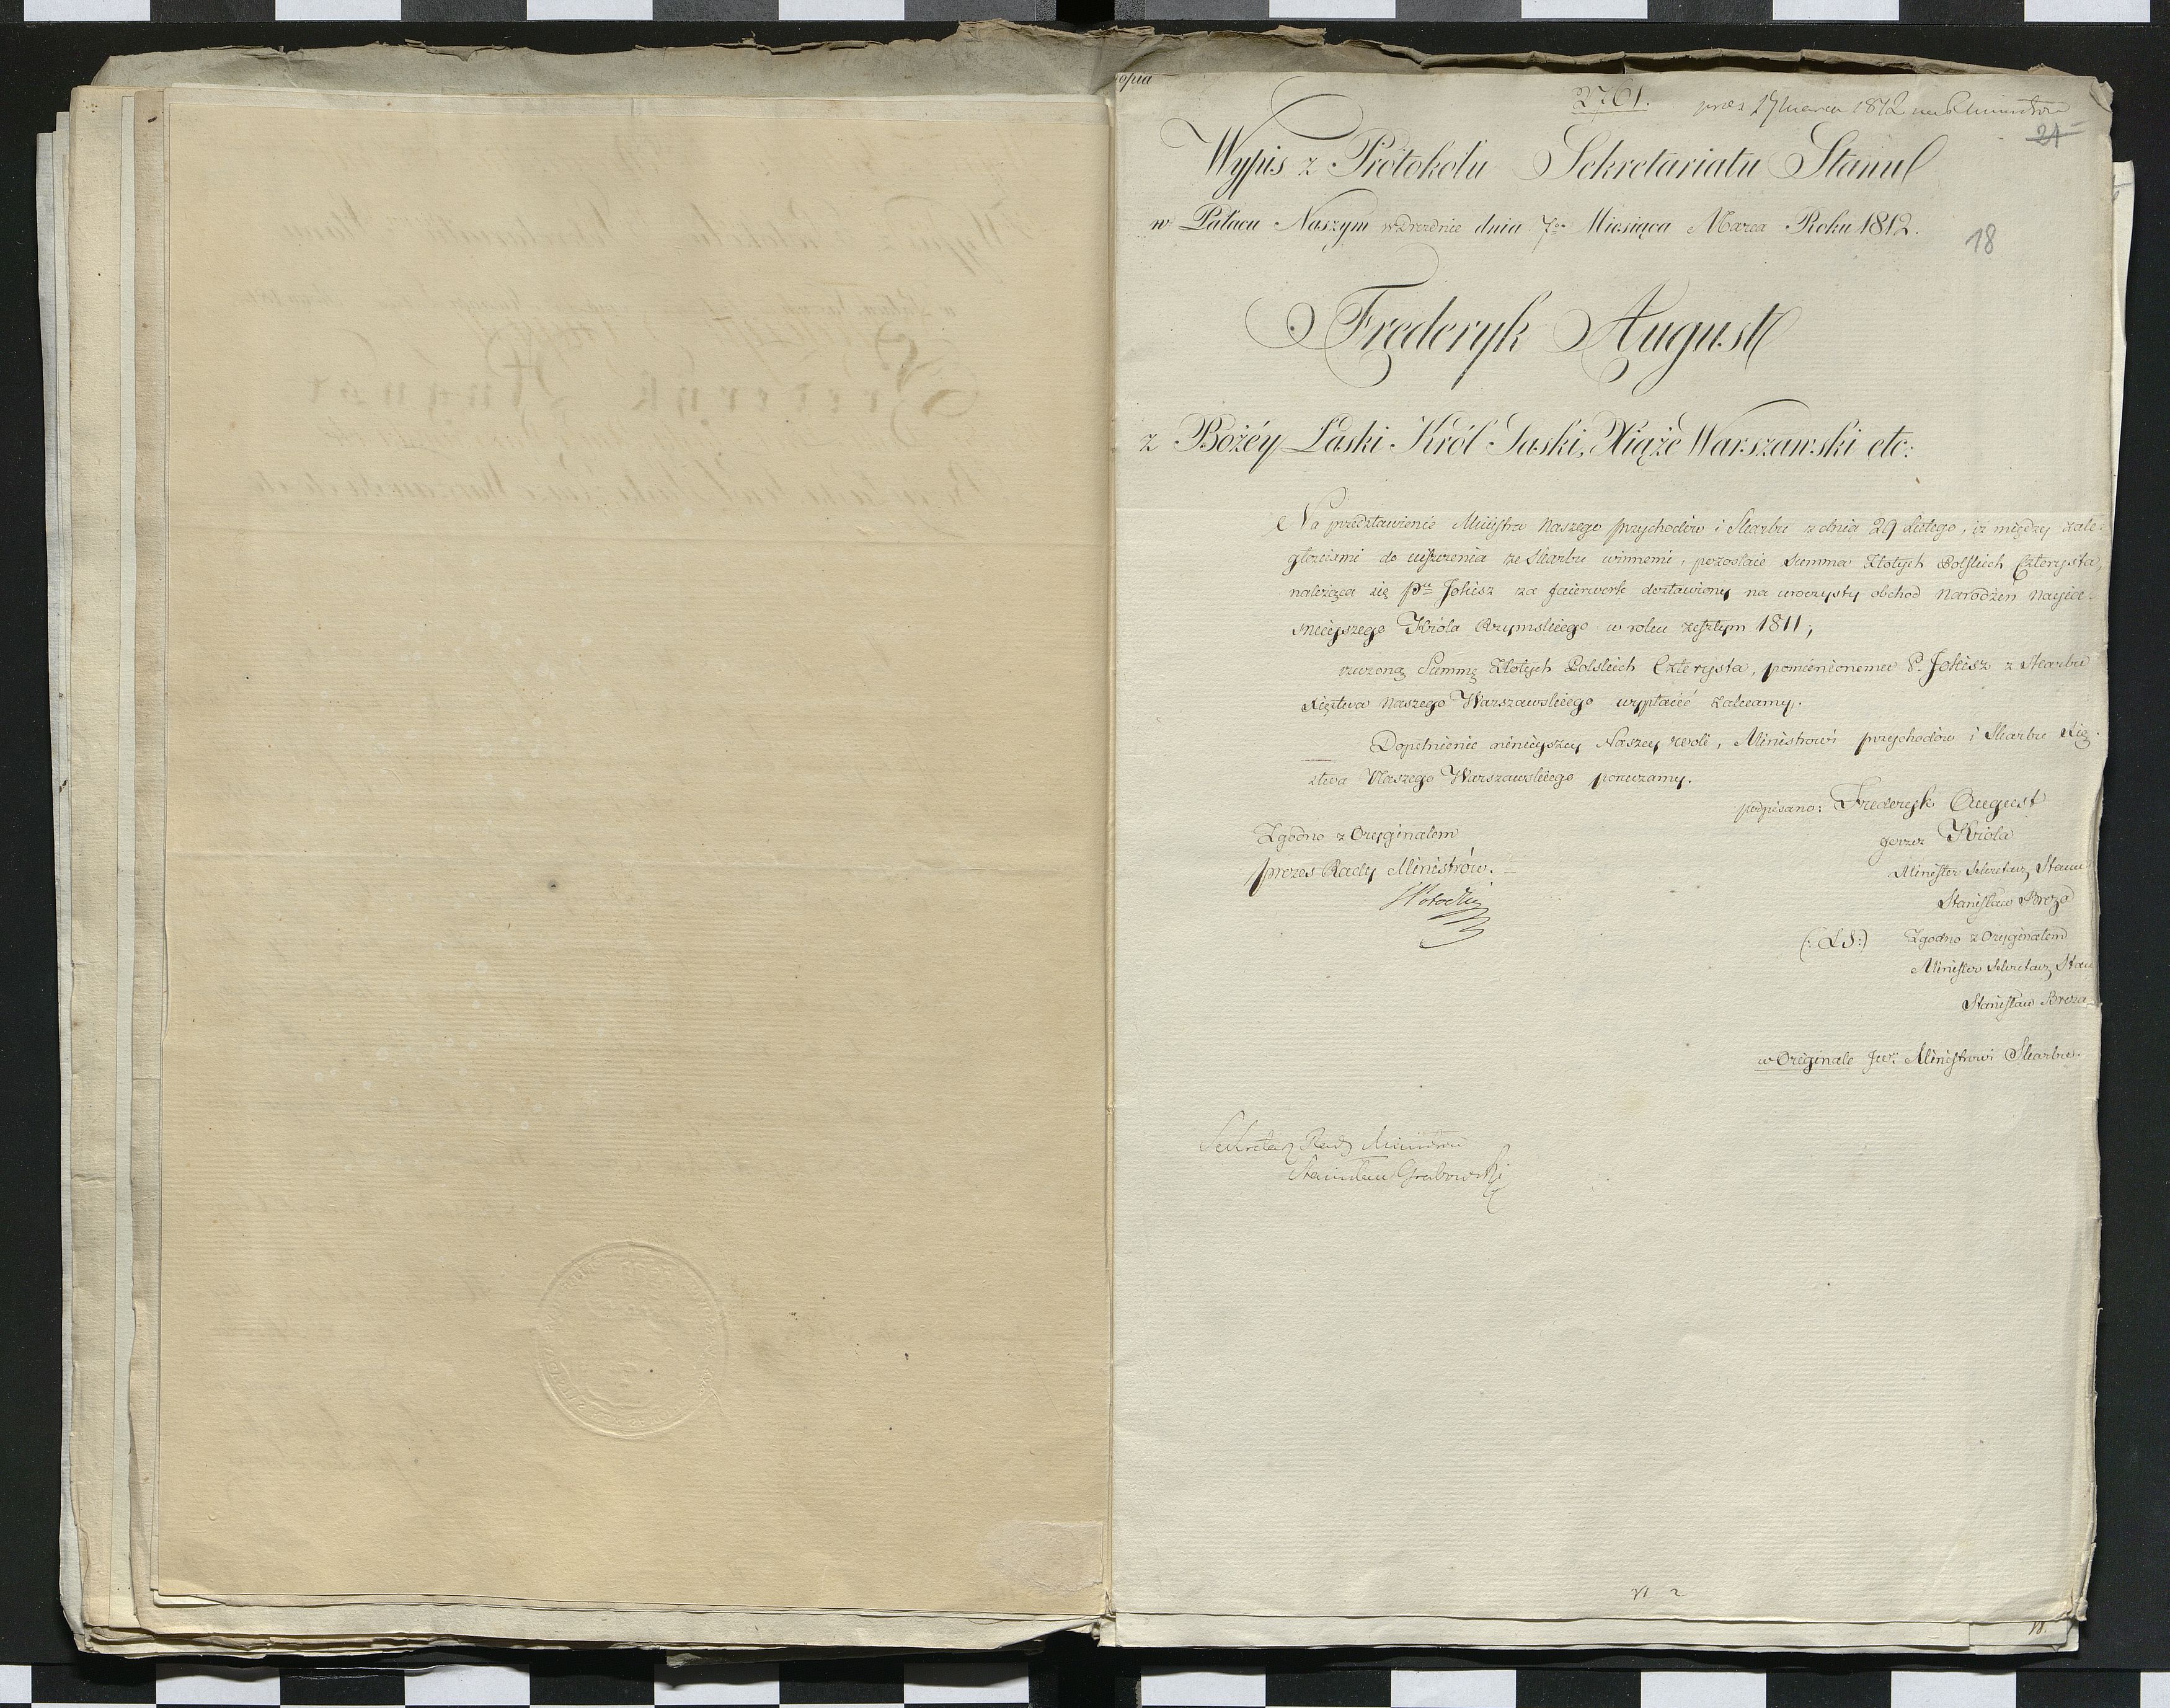 opia
2761.
prez 17 Marca 1812
21
Wypis z Protokołu Sekretariatu Stanu
w Pałacu Naszym w Dreznie dnia 7go Miesiąca Marca Roku 1812.
18
Frederyk August
z Bożéy Łaski Król Saski, Xiąże Warszawski etc:
Na przedstawienie Ministra Naszego przychodów i Skarbu z dnia 29 Lutego, iż między zale-
głościami do uiszczenia ze Skarbu winnemi, pozostaie Summa Złotych Polskich Czterysta,
należąca się Pu Jokisz za faierwerk dostawiony na uroczysty obchod Narodzeń Nayia-
snieyszego Króla Rzymskiego w roku zeszłym 1811;
rzeczoną Summę Złotych Polskich Czterysta, pomienionemu P. Jokisz z Skarbu
Xięstwa Naszego Warszawskiego wypłacić zalecamy.
Dopełnienie ninieyszey Naszey woli, Ministrowi przychodów i Skarbu Xię-
stwa Naszego Warszawskiego poruczamy.
podpisano: Frederyk August
Zgodno z Oryginałem
przez Króla
prezes Rady Ministrów.
Minister Sekretarz Stanu
Stanisław Breza
(:LS:) Zgodno z Oryginałem
Minister Sekretarz Stanu
Stanisław Breza
w Originale Jw: Ministrowi Skarbu.
Sekretarz Rady Ministrow
Stanisław Grabowski